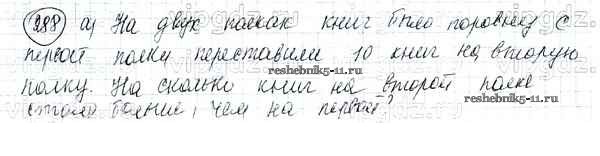 288 а) На двух полках книг было поровну. С
первой полки переставили 10 книг на вторую
полку. На сколько книг на второй полке
reshebnik5-11.ru reshebnik5-11.ru
стало больше, чем на первой?